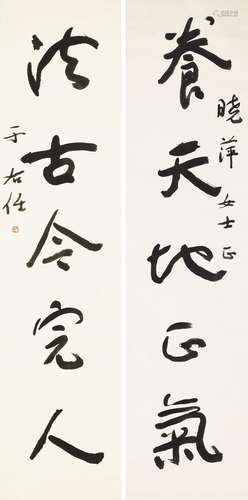 養天地正氣
曉萍女士正
法古今完人
于右任